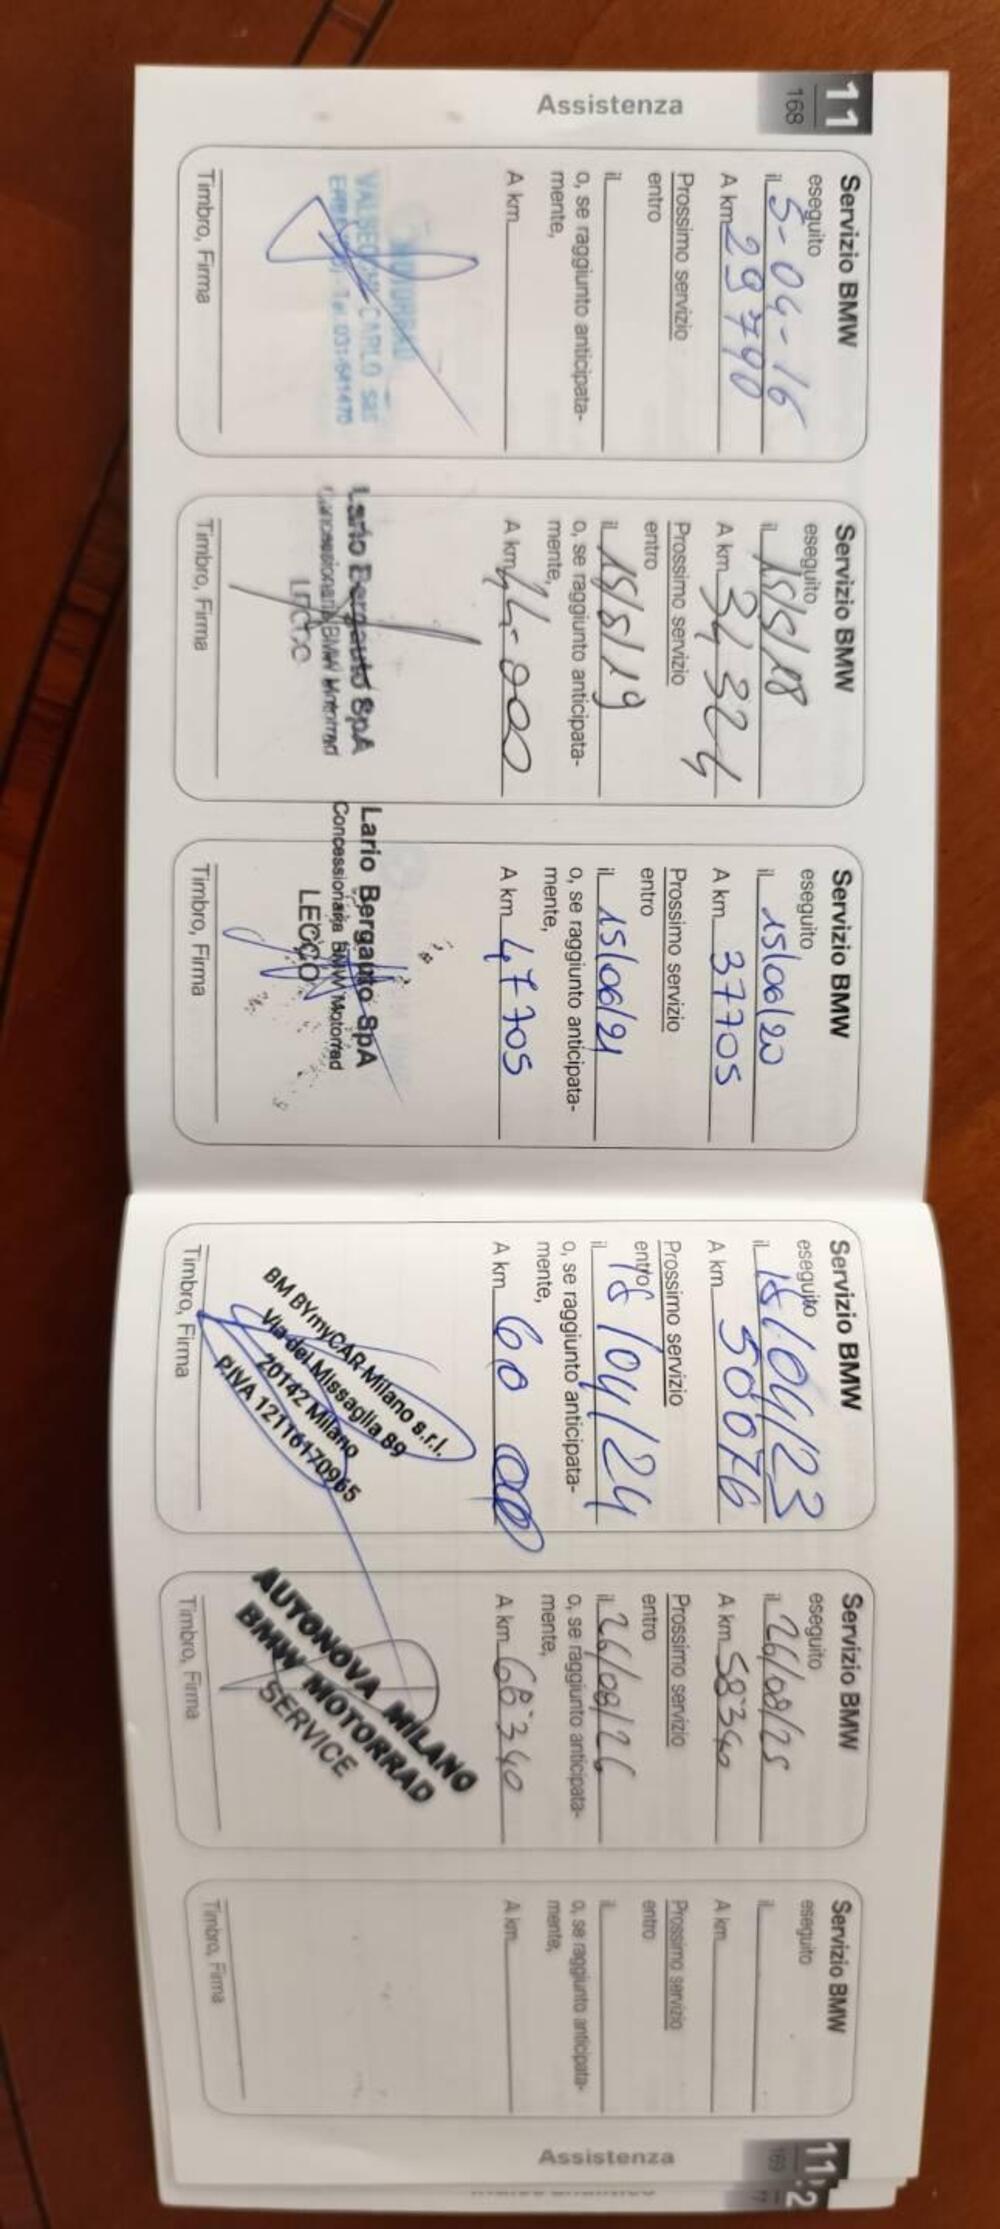 11
168
Assistenza
Servizio BMW
eseguito
il 5-04-16
A km 29790
Prossimo servizio
entro
il
o, se raggiunto anticipata-
mente,
A km
VALSECCHI CARLO sas
Timbro, Firma
Servizio BMW
eseguito
il 15/5/18
A km 34324
Prossimo servizio
entro
il 15/5/19
o, se raggiunto anticipata-
mente,
A km 44.000
Lario Bergauto SpA
Concessionaria BMW Motorrad
LECCO
Timbro, Firma
Servizio BMW
eseguito
il 15/06/20
A km 37705
Prossimo servizio
entro
il 15/06/21
o, se raggiunto anticipata-
mente,
A km 47705
Lario Bergauto SpA
Concessionaria BMW Motorrad
LECCO
Timbro, Firma
Servizio BMW
eseguito
il 18/04/23
A km 50076
Prossimo servizio
entro
il 18/04/24
o, se raggiunto anticipata-
mente,
A km 60 000
BM BYmyCAR Milano s.r.l.
Via dei Missaglia 89
20142 Milano
P.IVA 12116170965
Timbro, Firma
Servizio BMW
eseguito
il 26/08/25
A km 58340
Prossimo servizio
entro
il 26/08/26
o, se raggiunto anticipata-
mente,
A km 68340
AUTONOVA MILANO
BMW MOTORRAD
SERVICE
Timbro, Firma
Servizio BMW
eseguito
il
A km
Prossimo servizio
entro
il
o, se raggiunto anticipata-
mente,
A km
Timbro, Firma
Assistenza
11
169
12